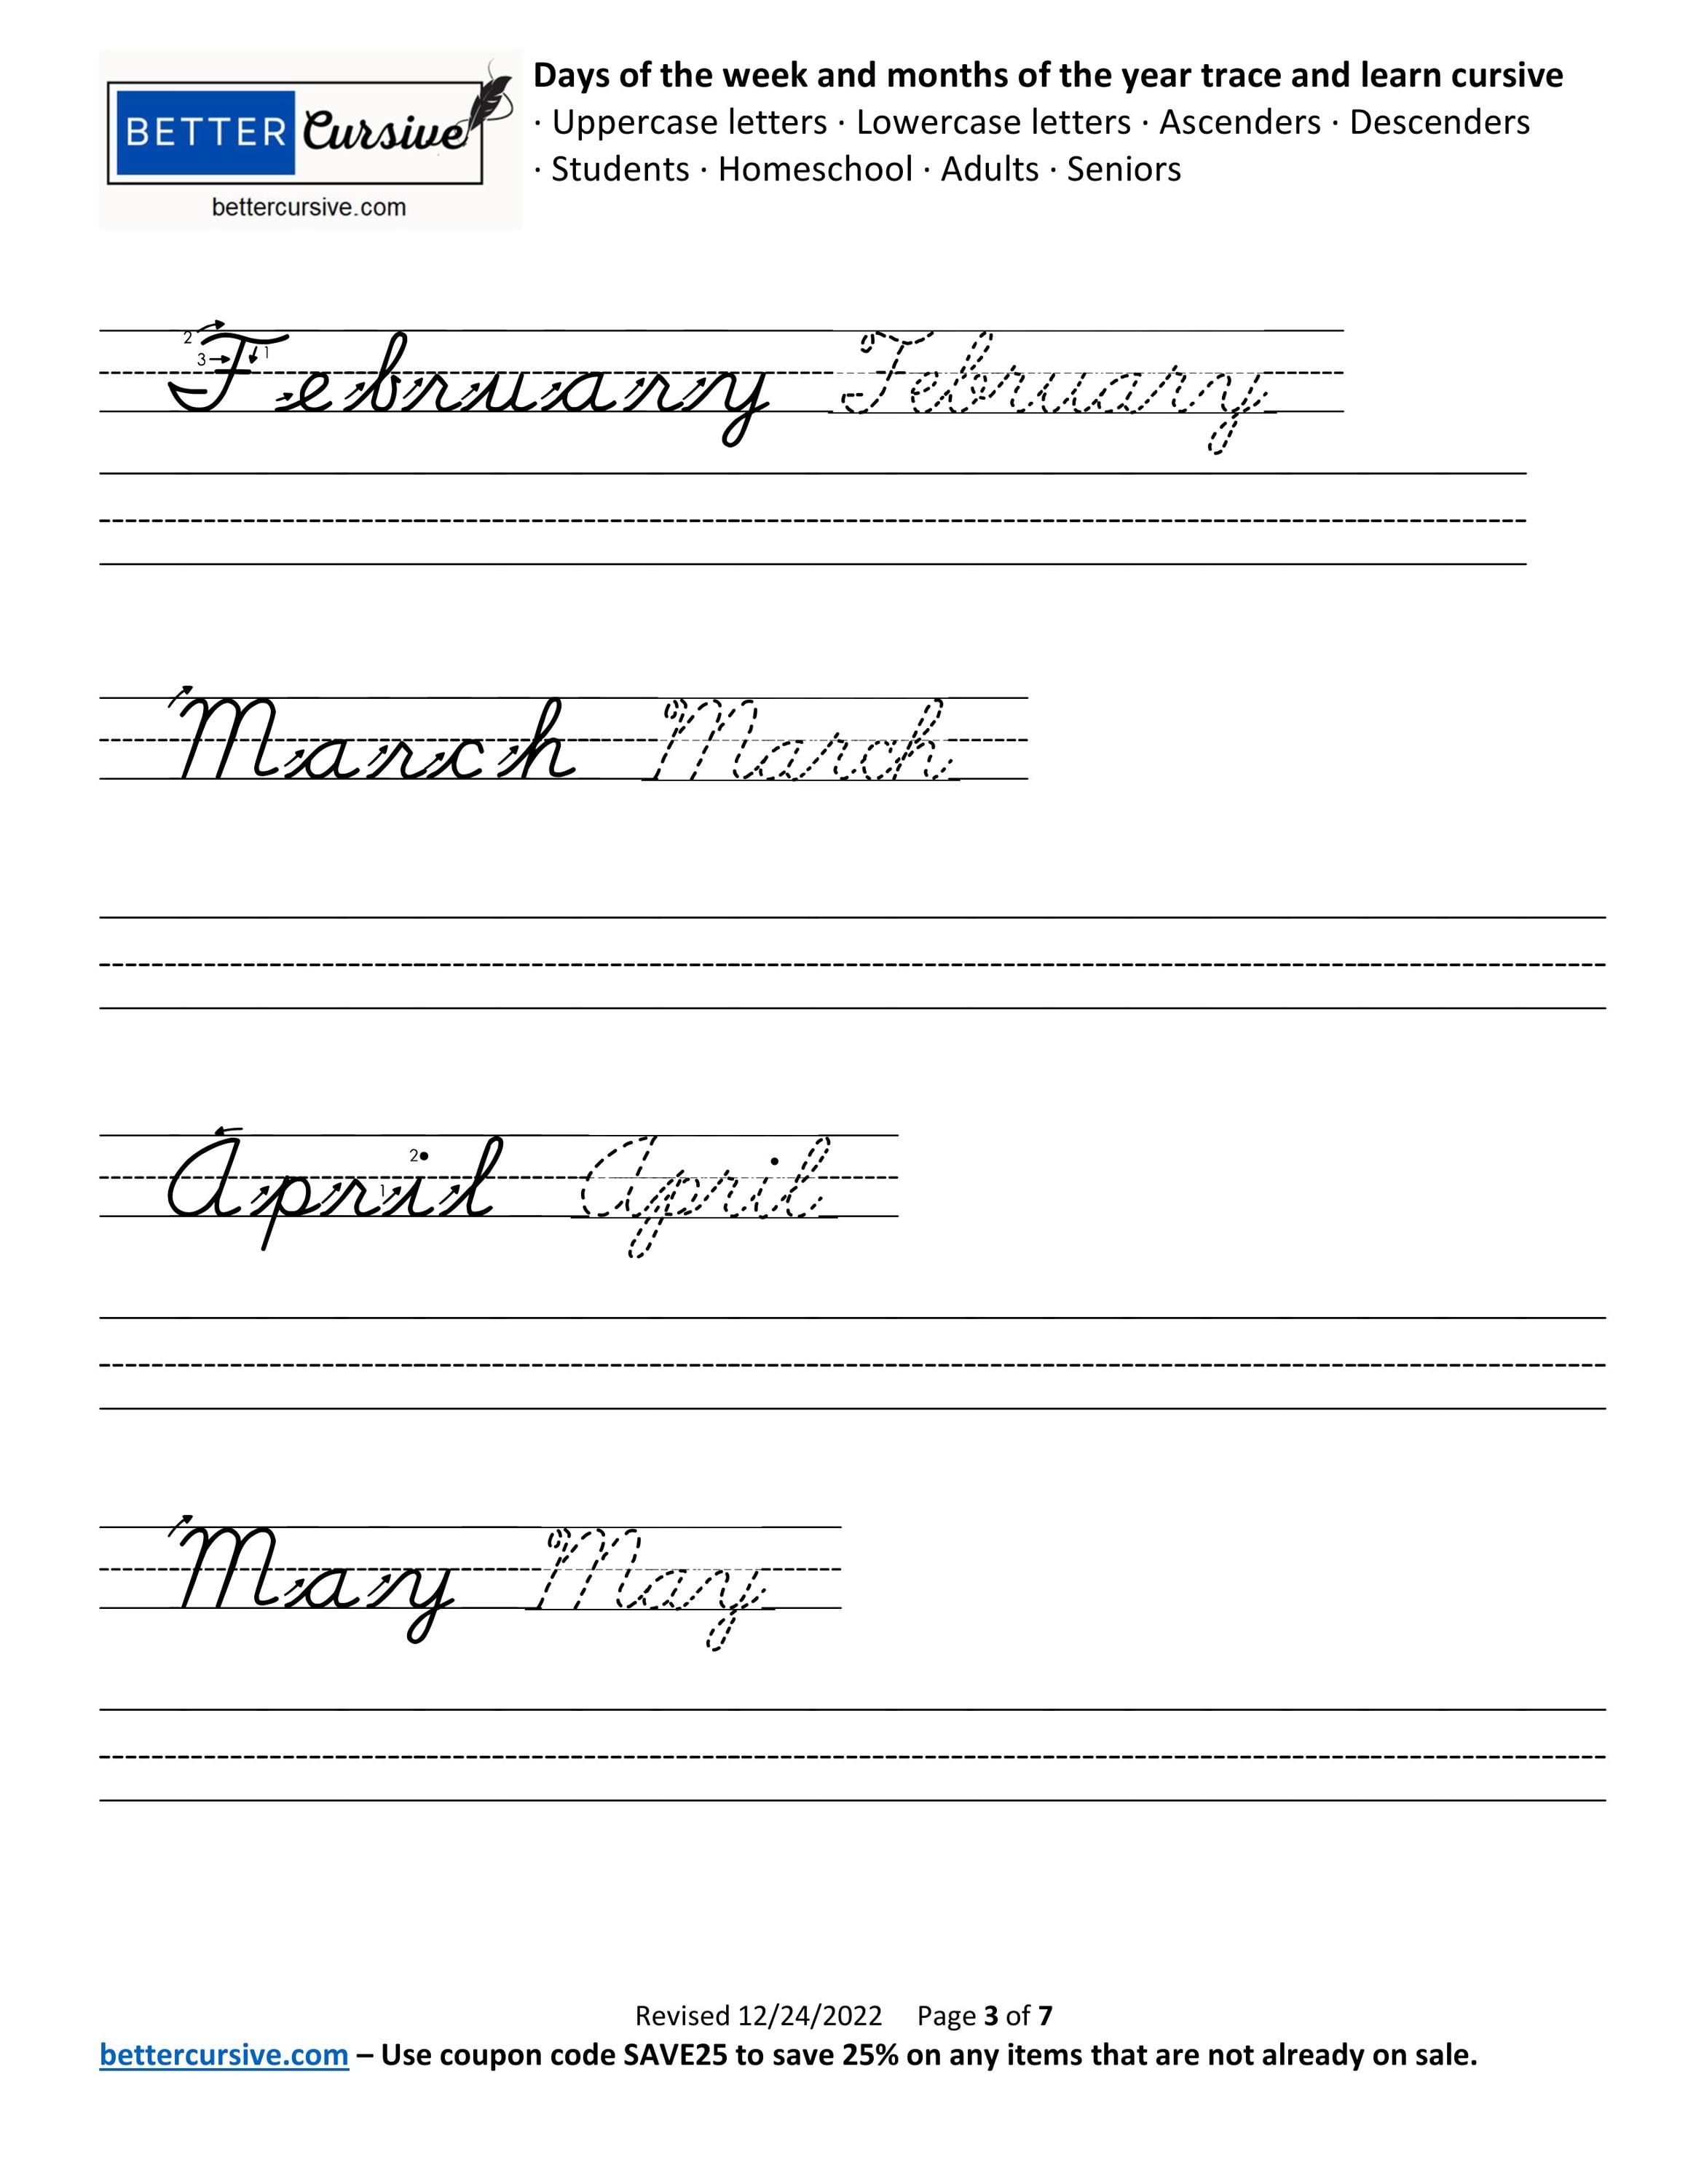 BETTER Cursive
bettercursive.com
Days of the week and months of the year trace and learn cursive
· Uppercase letters · Lowercase letters · Ascenders · Descenders
· Students · Homeschool · Adults · Seniors
2 3 1
February February
March March
2 1
April April
May May
Revised 12/24/2022 Page 3 of 7
bettercursive.com – Use coupon code SAVE25 to save 25% on any items that are not already on sale.